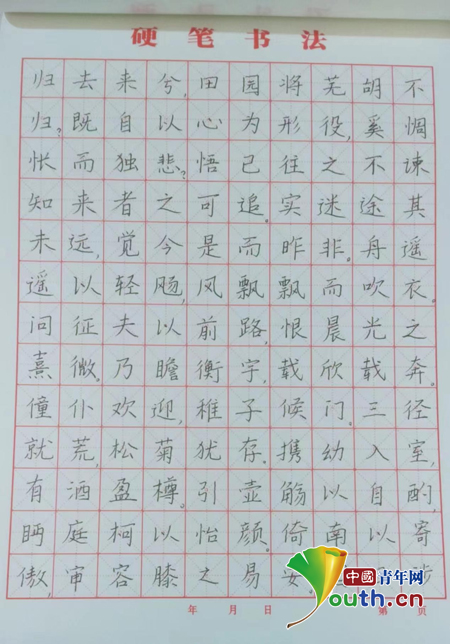 硬笔书法
归去来兮,田园将芜胡不
归?既自以心为形役,奚惆
怅而独悲?悟已往之不谏
知来者之可追。实迷途其
未远,觉今是而昨非。舟遥
遥以轻飏,风飘飘而吹衣。
问征夫以前路。恨晨光之
熹微。乃瞻衡宇,载欣载奔。
僮仆欢迎,稚子候门。三径
就荒,松菊犹存。携幼入室,
有酒盈樽。引壶觞以自酌,
眄庭柯以怡颜。倚南以寄
傲,审容膝之易安。
年 月 日 第 页
中國青年网
Youth.cn